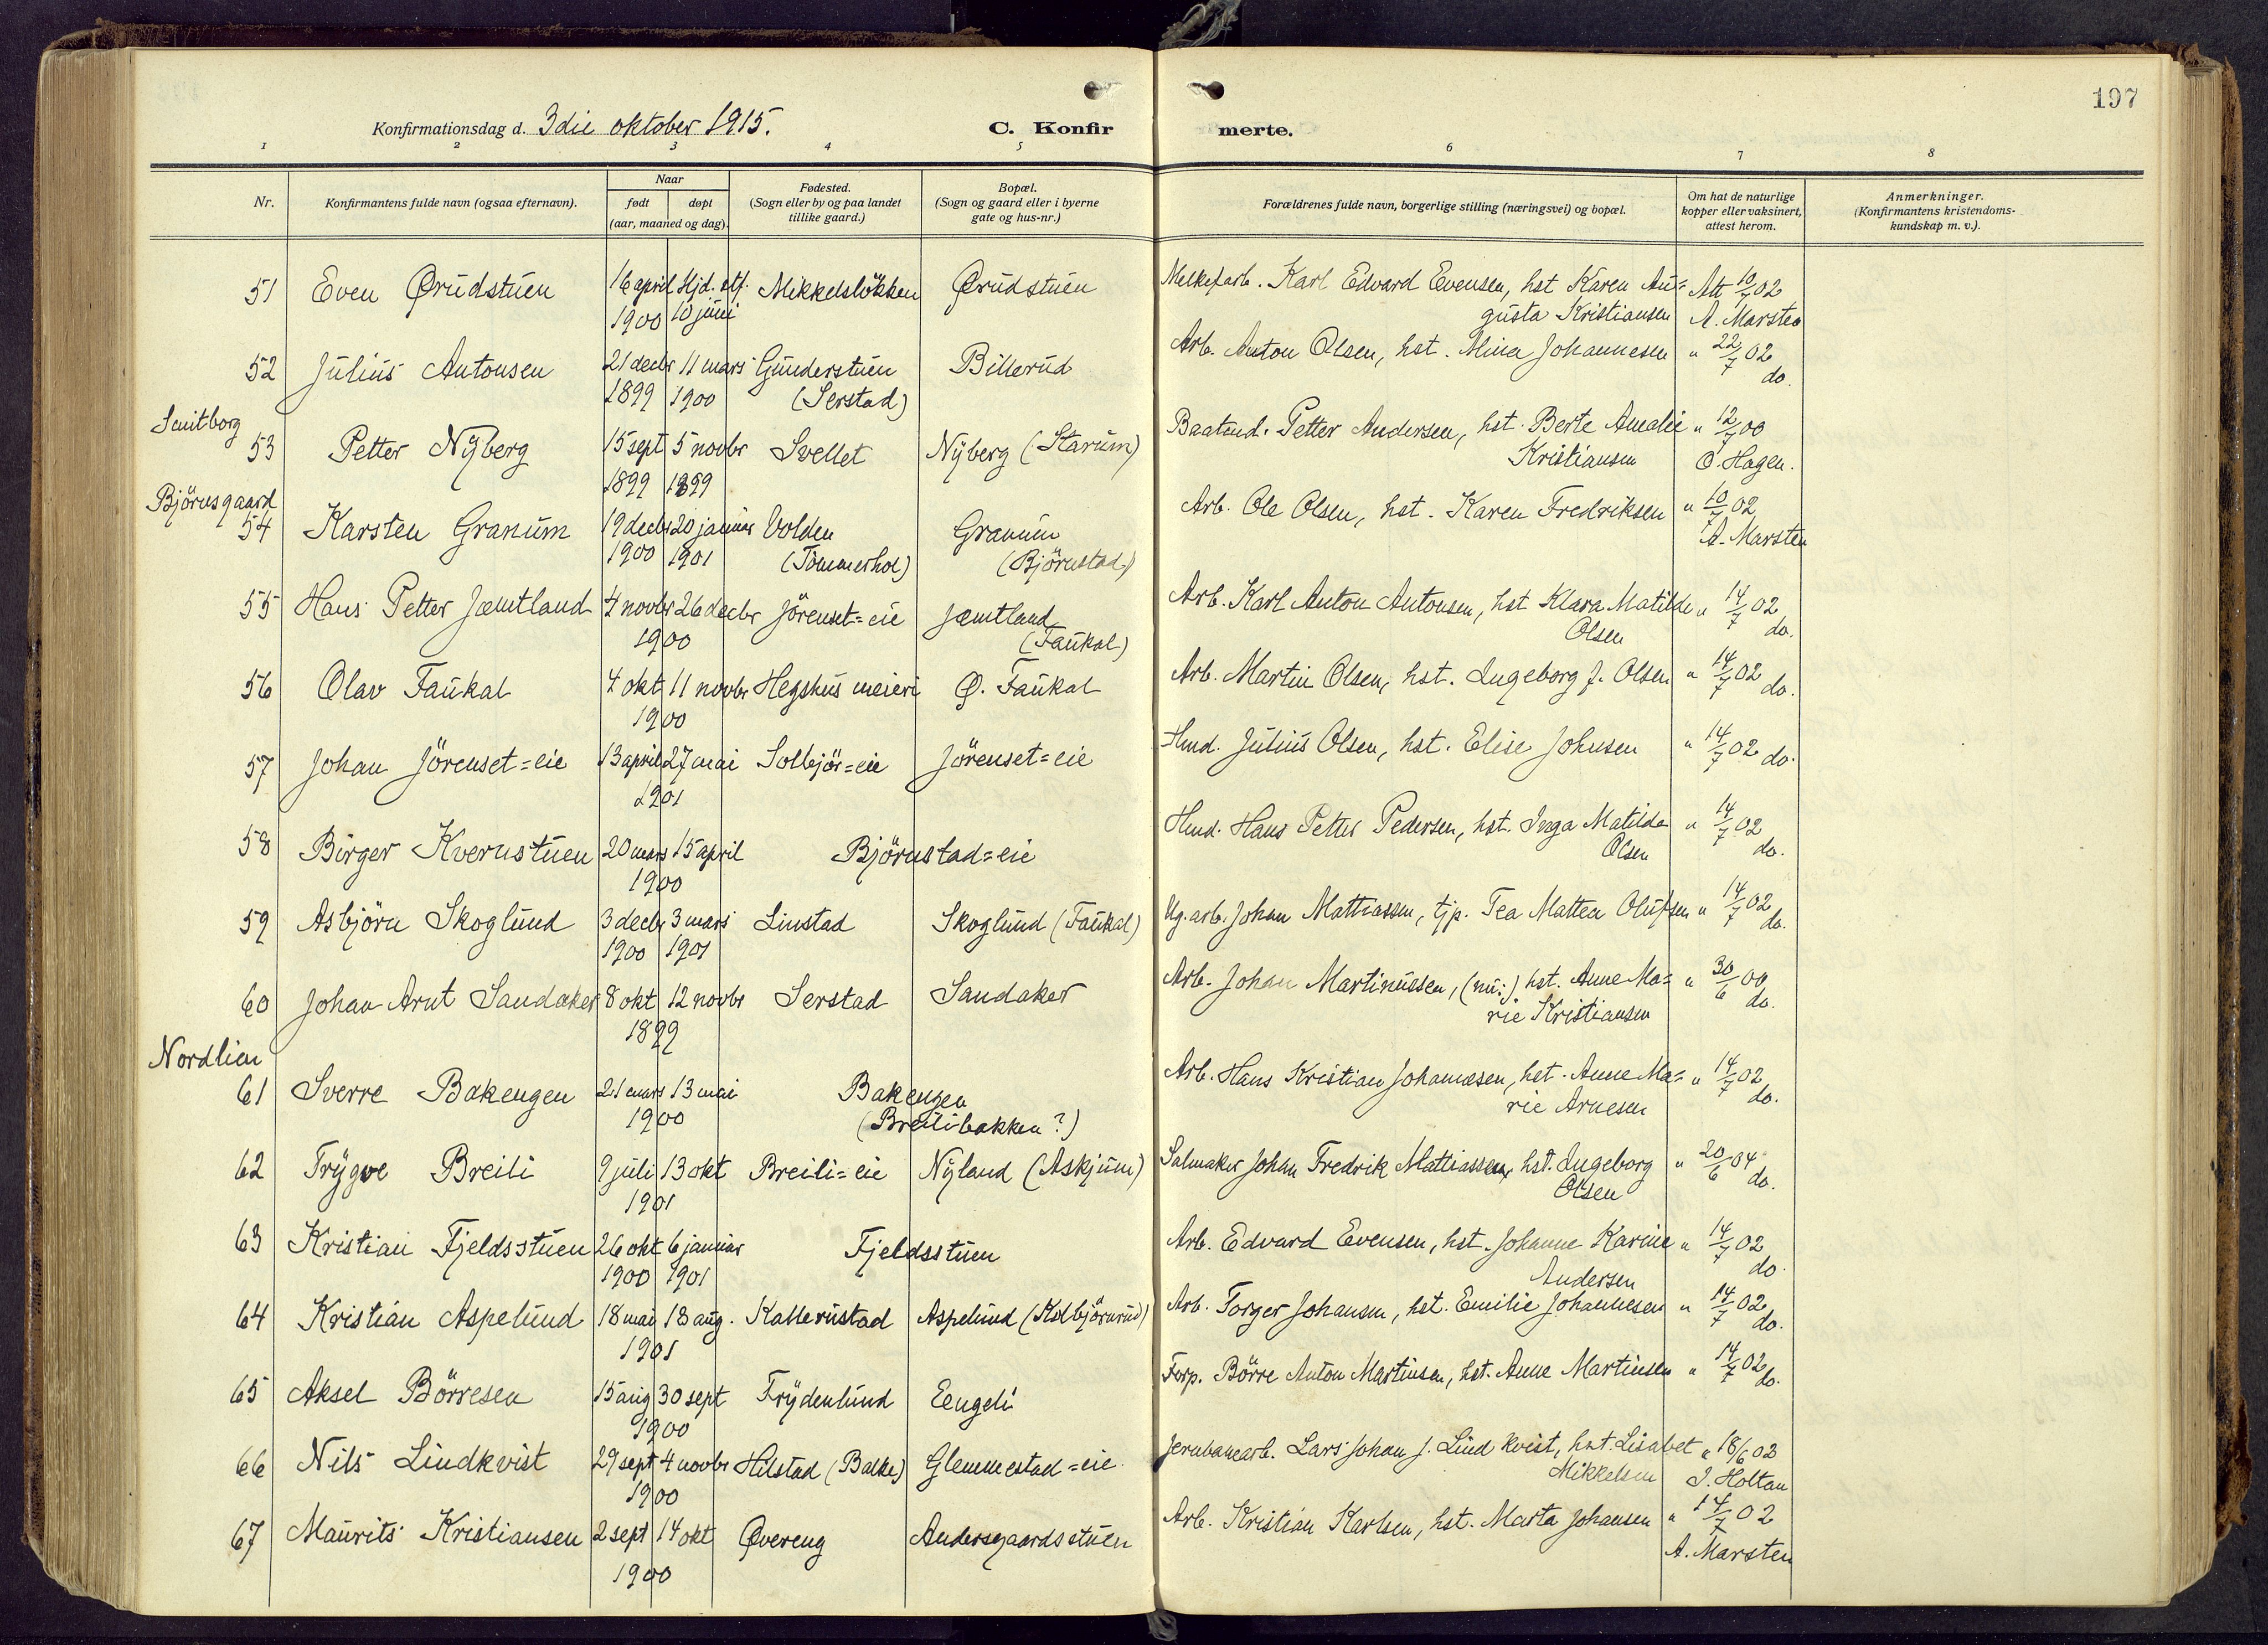 197
Konfirmationsdag d. 3die oktober 1915. C. Konfirmerte.
1 2 3 4 5 6 7 8
Nr. Konfirmantens fulde navn (ogsaa efternavn). Naar født døpt (aar, maaned og dag). Fødested. (Sogn eller by og paa landet tillike gaard.) Bopæl. (Sogn og gaard eller i byerne gate og hus-nr.) Forældrenes fulde navn, borgerlige stilling (næringsvei) og bopæl. Om hat de naturlige kopper eller vaksinert, attest herom. Anmerkninger. (Konfirmantens kristendomskundskap m. v.).
51 Even Ørudstuen 16 april Hjd. 10 juni Mikkelsløkken Ørudstuen Melkefarb. Karl Edvard Evensen, hst Karen Au= Att 10/7 02
1900 gusta Kristiansen A. Marsten
52 Julius Antonsen 21 decbr 11 mars Gunderstuen Billerud Arb. Anton Olsen, hst. Mina Johannesen " 22/7 02
1899 1900 (Serstad) do.
53 Petter Nyberg 15 sept 5 novbr Svellet Nyberg (Starum) Petter Andersen, hst. Berte Amalie " 12/7 00
1899 1899 Kristiansen O. Hagen.
Björnsgaard
54 Karsten Granum 19 decbr 20 januar Volden Granum Arb. Ole Olsen, hst. Karen Fredriksen " 10/7 02
1900 1901 (Tömmerhol) (Björnstad) A. Marsten
55 Hans Petter Jæmtland 4 novbr 26 decbr Jörenset=eie Jæmtland Arb. Karl Anton Antonsen, hst Klara Matilde " 14/7 02
1900 (Faukal) Olsen do.
56 Olav Faukal 4 okt 11 novbr Hegshus meieri Ø. Faukal Arb. Martin Olsen, hst. Ingeborg J. Olsen " 14/7 02 do.
1900
57 Johan Jörenset=eie 13 april 27 mai Solbjör=eie Jörenset=eie Hmd. Julius Olsen, hst. Elise Johnsen " 14/7 02 do.
1901
58 Birger Kvernstuen 20 mars 15 april Björnstad=eie Hmd. Hans Petter Pedersen, hst. Inga Matilda " 14/7 02
1900 Olsen do.
59 Asbjörn Skoglund 3 decbr 3 mars Linstad Skoglund (Faukal) Ug. arb. Johan Mattiassen, tjp. Tea Mattea Olufsen " 14/7 02
1900 1901 do.
60 Johan Arnt Sandaker 8 okt 12 novbr Serstad Sandaker Arb. Johan Martinussen, (nu:) hst. Anne Ma= " 30/6 00
1899 rie Kristiansen do.
Nordlien
61 Sverre Bakengen 21 mars 13 mai Bakengen Arb. Hans Kristian Johannesen, hst. Anne Ma= " 14/7 02
1900 (Breilibakken?) rie Arnesen do.
62 Trygve Breili 9 juli 13 okt Breili=eie Nyland (Askjum) Salmaker Johan Fredrik Mattiassen, hst. Ingeborg " 20/6 04
1901 Olsen do.
63 Kristian Fjeldsstuen 26 okt 6 januar Fjeldsstuen Arb. Edvard Evensen, hst. Johanne Karine " 14/7 02
1900 1901 Andersen do.
64 Kristian Aspelund 18 mai 18 aug. Kallerustad Aspelund (Kolbjörnrud) Arb. Torger Johansen, hst. Emilie Johannesen " 14/7 02
1901 do.
65 Aksel Börresen 15 aug 30 sept Frydenlund Eengeli Forp. Börre Anton Martinsen, hst. Anne Martinsen " 14/7 02
1900 do.
66 Nils Lindkvist 29 sept 4 novbr Hilstad (Balke) Glemmestad=eie Jernbanearb. Lars Johan J. Lindkvist, hst. Lisabet " 18/6 02
1900 Mikkelsen J. Holtan
67 Maurits Kristiansen 2 sept 14 okt Övereng Andersgaardsstuen Arb. Kristian Karlsen, hst. Marta Johansen " 14/7 02
1900 A. Marsten